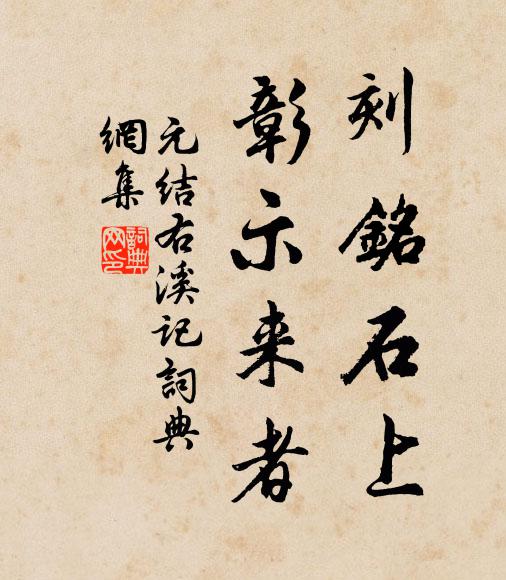 刻銘石上
彰示来者
元结右溪记詞典
網集
詞典
网印